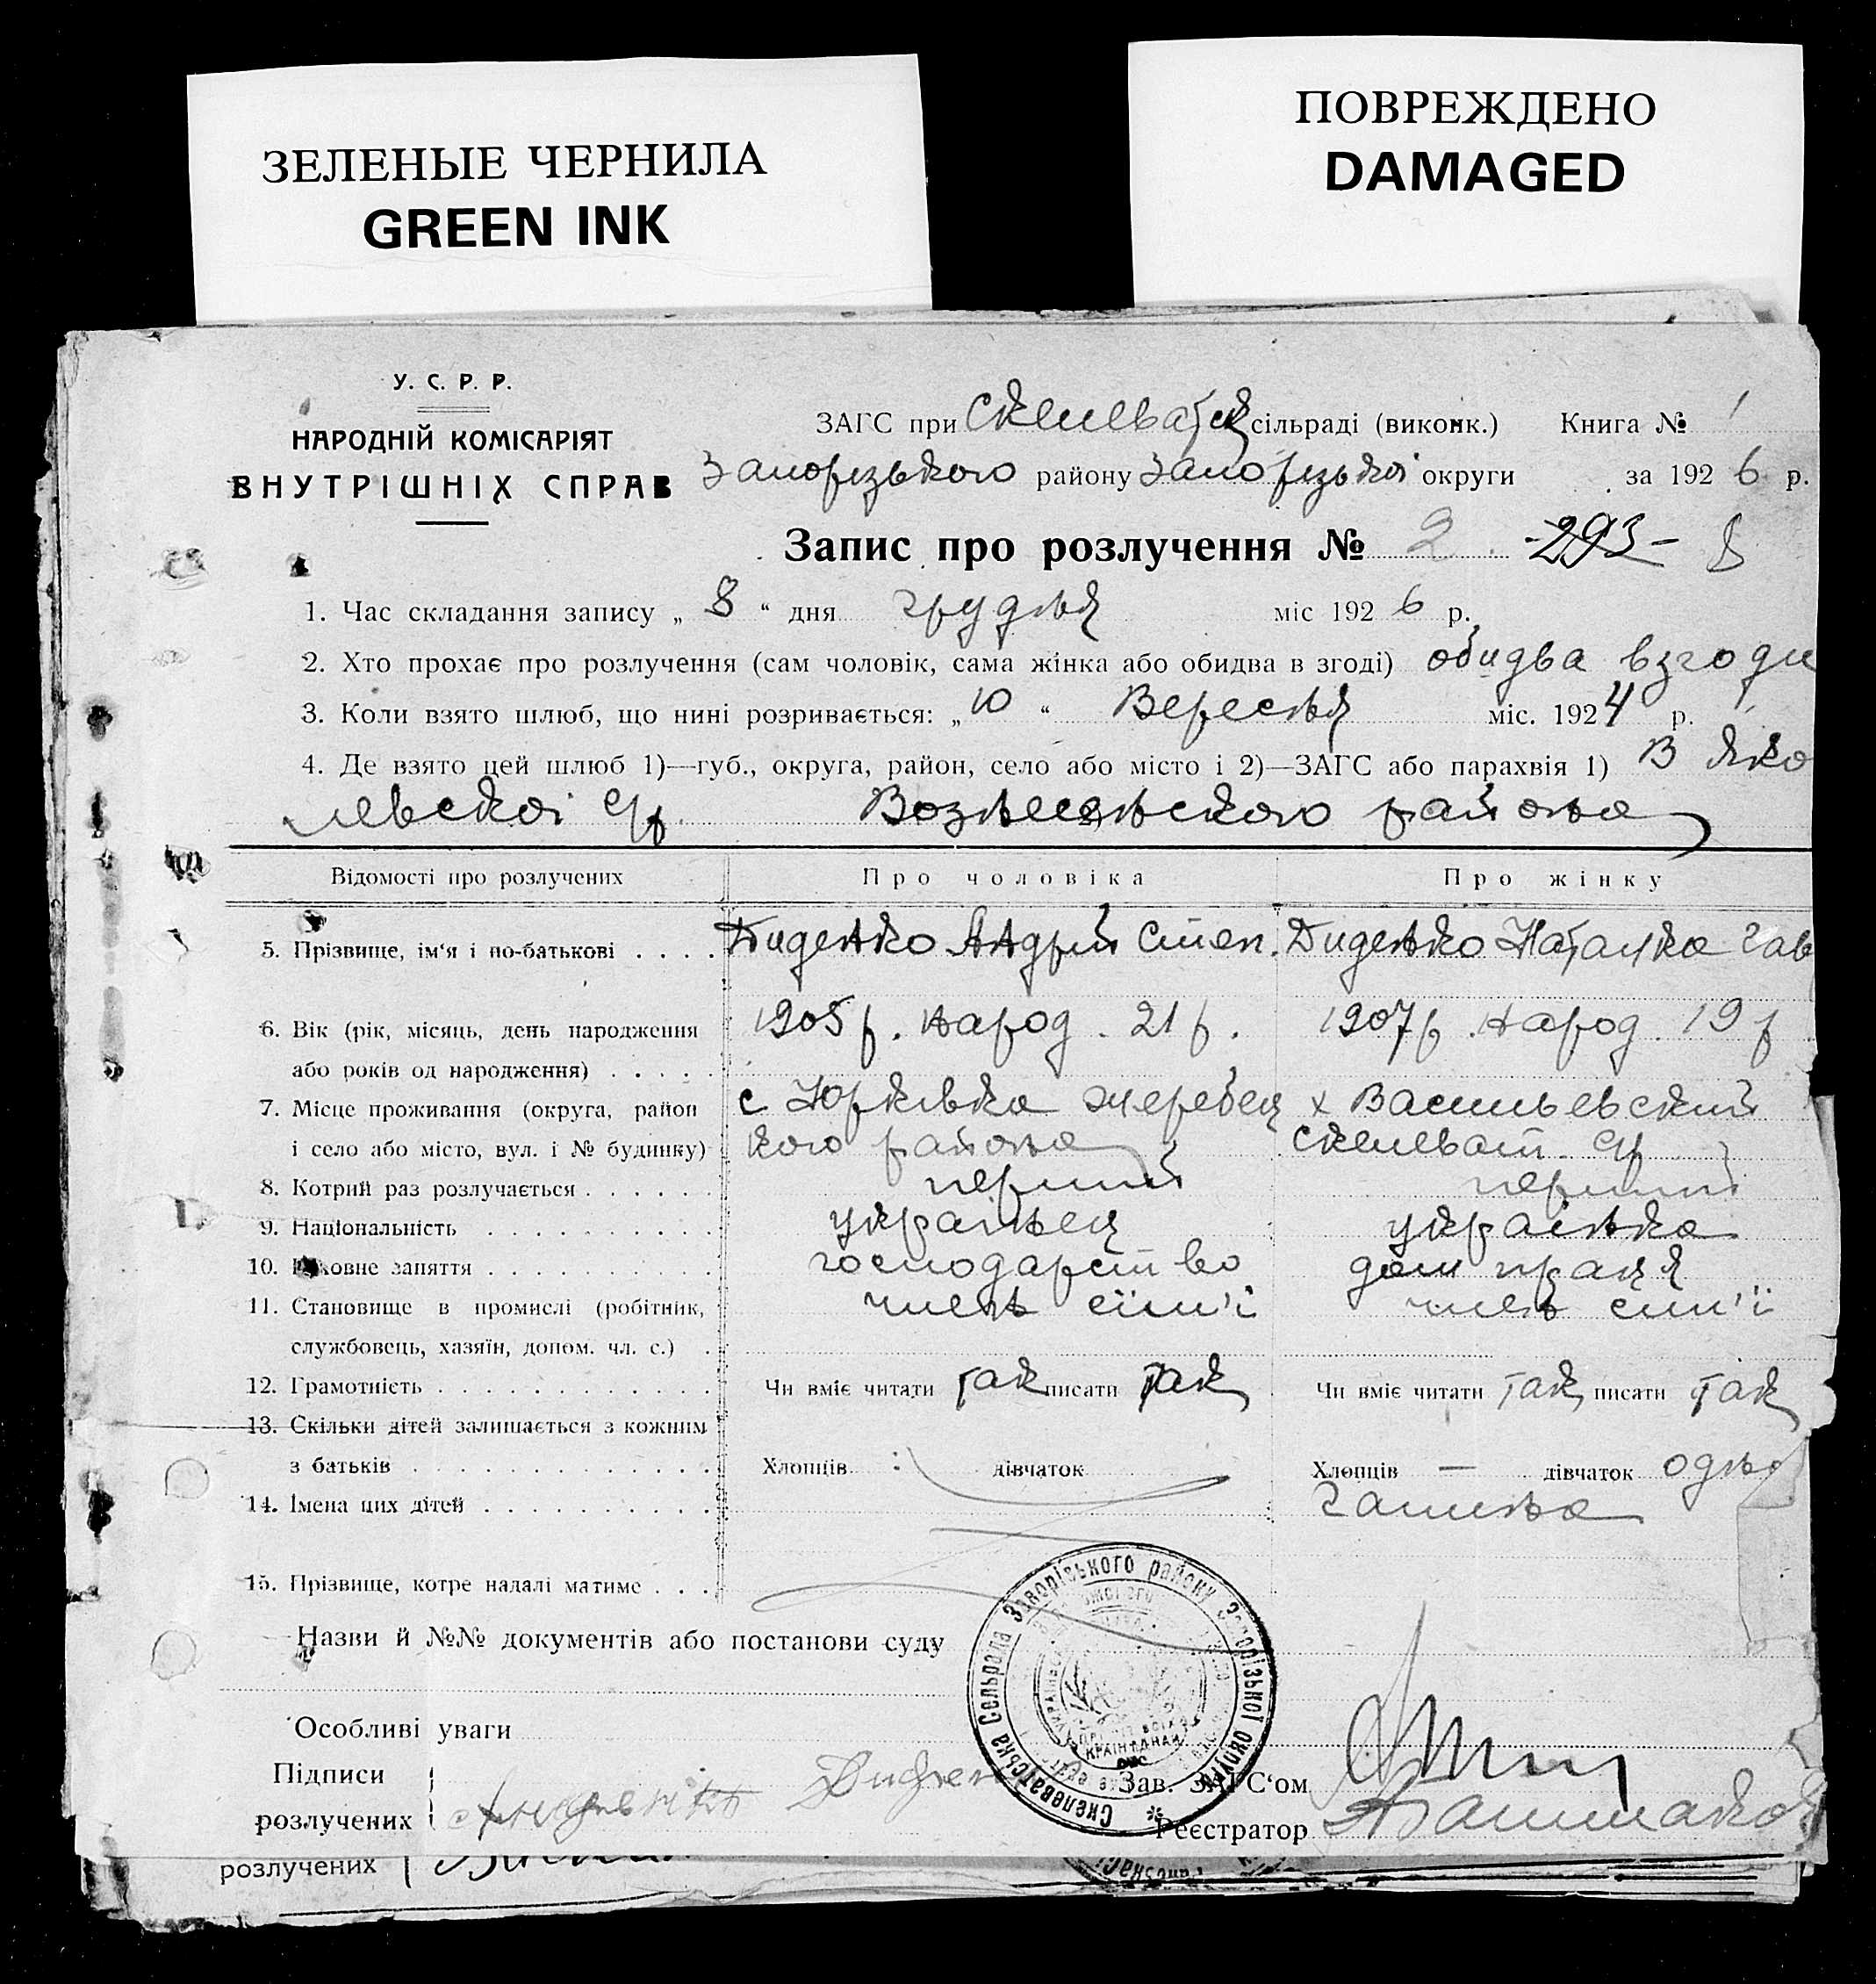 ЗЕЛЕНЫЕ ЧЕРНИЛА
GREEN INK
ПОВРЕЖДЕНО
DAMAGED
У. С. Р. Р.
НАРОДНІЙ КОМІСАРІЯТ
ВНУТРІШНІХ СПРАВ
ЗАГС при Скелеватск сільраді (виконк.) Книга № 1
Запорізького району Запорізькоі округи за 1926 р.
Запис про розлучення № 2 -293- 8
1. Час складання запису „ 8 “ дня грудня міс 1926 р.
2. Хто прохає про розлучення (сам чоловік, сама жінка або обидва в згоді) обидва взгоди
3. Коли взято шлюб, що нині розривається: „ 10 “ Вересня міс. 1924 р.
4. Де взято цей шлюб 1)—губ., округа, район, село або місто і 2)—ЗАГС або парахвія 1) В Яко
влевскоі с/р. Вознесенского района
Відомості про розлучених
Про чоловіка
Про жінку
5. Прізвище, ім‘я і по-батькові . . . . Диденко Андрій Степ. Диденко Наталка Гав
6. Вік (рік, місяць, день народження 1905 р. народ. 21 р. 1907 р. народ. 19 р
або років од народження) . . . . .
7. Місце проживання (округа, район с Юрківка жеребец х Васильевский
і село або місто, вул. і № будинку) кого района скелеват с/р
8. Котрий раз розлучається . . . . . . перший перший
9. Національність . . . . . . . . . . українец українка
10. овне заняття . . . . . . . . . . господарство дом праця
11. Становище в промислі (робітник, член сім'ї член сим'ї
службовець, хазяїн, допом. чл. с.) .
12. Грамотність . . . . . . . . . . . . Чи вміє читати так писати так Чи вміє читати так писати так
13. Скільки дітей залишається з кожним
з батьків . . . . . . . . . . . . . Хлопців дівчаток Хлопців — дівчаток одна
14. Імена цих дітей . . . . . . . . . . Галина
15. Прізвище, котре надалі матиме . . .
Назви й №№ документів або постанови суду
Скелеватська Сельрада Запорізького району Запорізької округи
Особливі уваги
Підписи
розлучених
Зав. ЗАГС‘ом
Реєстратор
розлучених